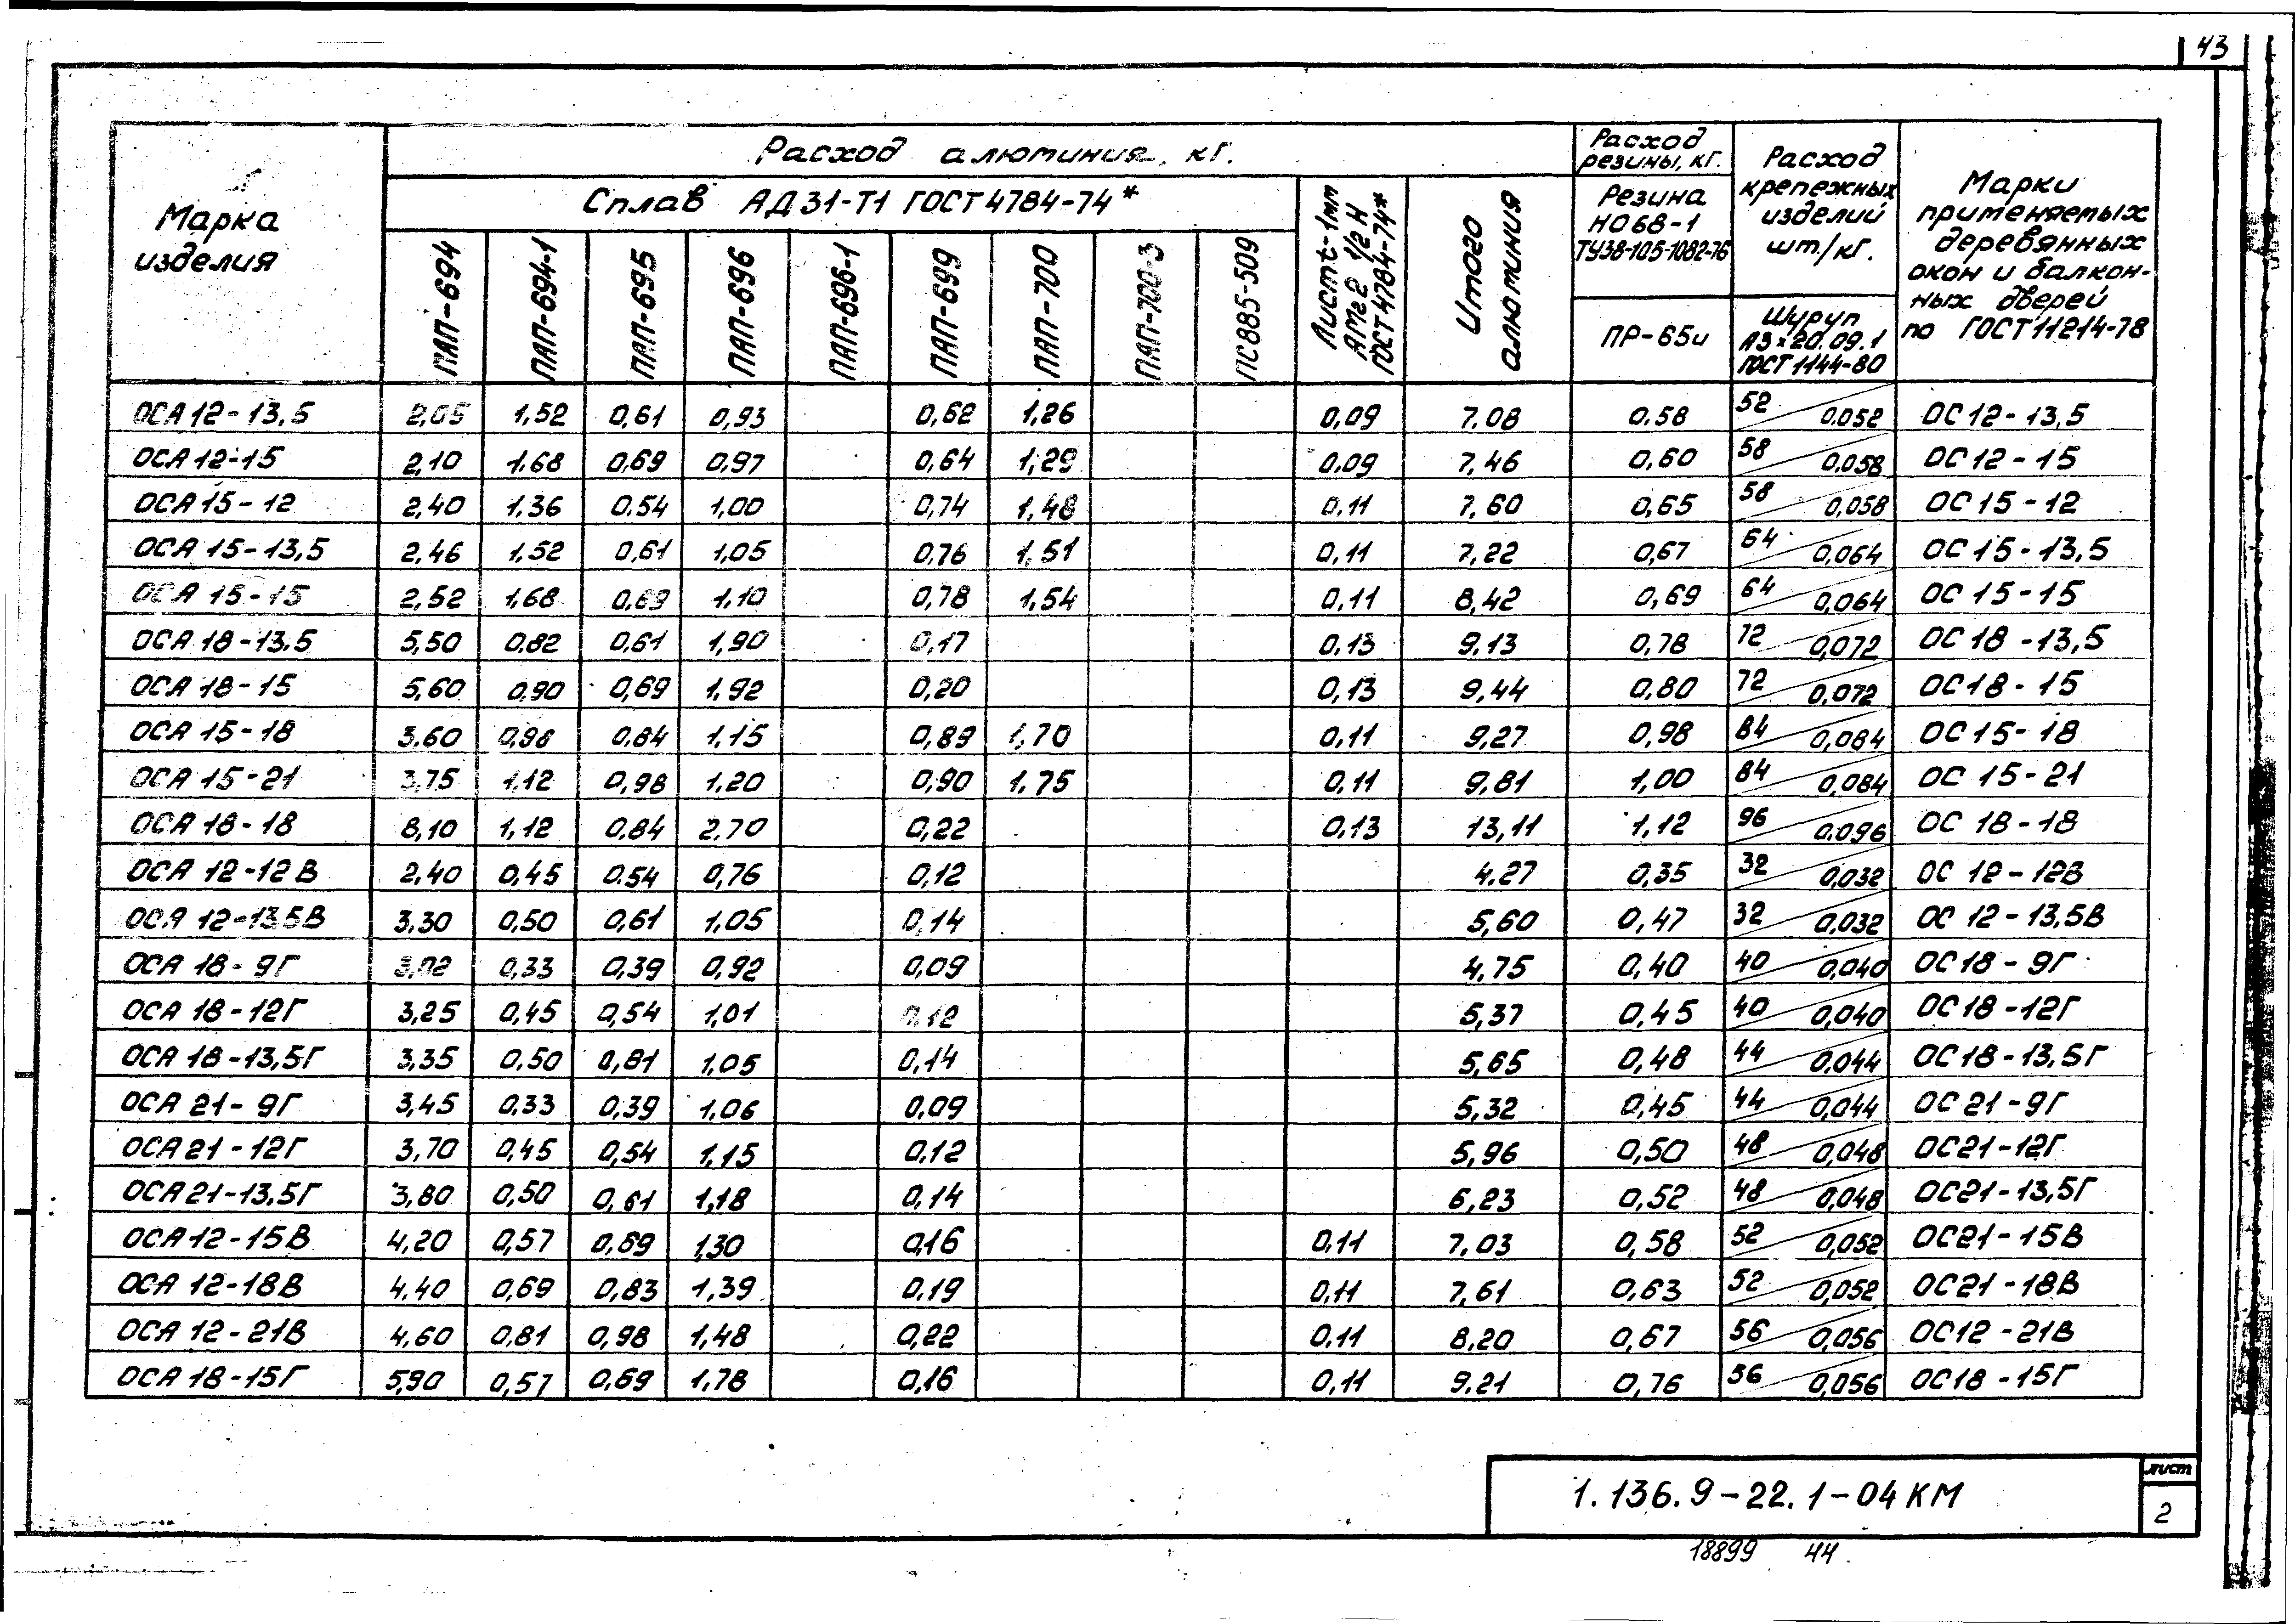 43
Марка изделия
Расход алюминия, кг.
Сплав АД31-Т1 ГОСТ 4784-74*
ПАП-694 ПАП-694-1 ПАП-695 ПАП-696 ПАП-696-1 ПАП-699 ПАП-700 ПАП-700-3 ПС885-509
Лист t-1мм АМг2 1/2Н ГОСТ 4784-74*
Итого алюминия
Расход резины, кг.
Резина НО68-1 ТУ38-105-1082-76
ПР-65и
Расход крепежных изделий шт./кг.
Шуруп А3х20.09.1 ГОСТ 1144-80
Марки применяемых деревянных окон и балкон-ных дверей по ГОСТ 11214-78
ОСА 12-13,5 2,05 1,52 0,61 0,93 0,62 1,26 0,09 7.08 0.58 52 0.052 ОС 12-13,5
ОСА 12-15 2,10 1.68 0,69 0,97 0,64 1,29 0.09 7,46 0,60 58 0.058 ОС 12-15
ОСА 15-12 2,40 1.36 0.54 1,00 0,74 1,48 0,11 7,60 0,65 58 0,058 ОС 15-12
ОСА 15-13,5 2,46 1,52 0,61 1,05 0,76 1,51 0,11 7,22 0,67 64 0,064 ОС 15-13,5
ОСА 15-15 2,52 1,68 0,69 1,10 0,78 1,54 0,11 8,42 0,69 64 0,064 ОС 15-15
ОСА 18-13.5 5,50 0,82 0,61 1,90 0,17 0,13 9.13 0,78 72 0,072 ОС 18-13,5
ОСА 18-15 5,60 0,90 0,69 1,92 0,20 0,13 9,44 0,80 72 0,072 ОС 18-15
ОСА 15-18 3.60 0,96 0,84 1,15 0,89 1,70 0,11 9,27 0,98 84 0,084 ОС 15-18
ОСА 15-21 3,75 1,12 0,98 1,20 0,90 1,75 0,11 9,81 1,00 84 0,084 ОС 15-21
ОСА 18-18 8,10 1,12 0,84 2.70 0,22 0,13 13,11 1,12 96 0.096 ОС 18-18
ОСА 12-12В 2,40 0,45 0.54 0,76 0,12 4.27 0,35 32 0,032 ОС 12-12В
ОСА 12-13,5В 3,30 0,50 0,61 1,05 0,14 5,60 0,47 32 0,032 ОС 12-13,5В
ОСА 18-9Г 3,02 0,33 0,39 0,92 0,09 4,75 0,40 40 0,040 ОС 18-9Г
ОСА 18-12Г 3,25 0,45 0,54 1,01 0,12 5,37 0,45 40 0,040 ОС 18-12Г
ОСА 18-13,5Г 3,35 0,50 0,81 1,05 0,14 5,65 0,48 44 0.044 ОС 18-13,5Г
ОСА 21-9Г 3,45 0,33 0,39 1.06 0,09 5,32 0,45 44 0,044 ОС 21-9Г
ОСА 21-12Г 3,70 0,45 0,54 1,15 0.12 5,96 0,50 48 0,048 ОС21-12Г
ОСА 21-13,5Г 3,80 0,50 0,61 1,18 0,14 6,23 0,52 48 0,048 ОС21-13,5Г
ОСА 12-15В 4,20 0,57 0,69 1,30 0,16 0,11 7.03 0,58 52 0,052 ОС21-15В
ОСА 12-18В 4,40 0,69 0,83 1,39 0.19 0,11 7,61 0,63 52 0,052 ОС21-18В
ОСА 12-21В 4,60 0,81 0,98 1,48 0,22 0.11 8,20 0,67 56 0,056 ОС12-21В
ОСА 18-15Г 5,90 0,57 0,69 1.78 0,16 0,11 9.21 0,76 56 0,056 ОС18-15Г
1.136.9-22.1-04КМ
лист
2
18899 44